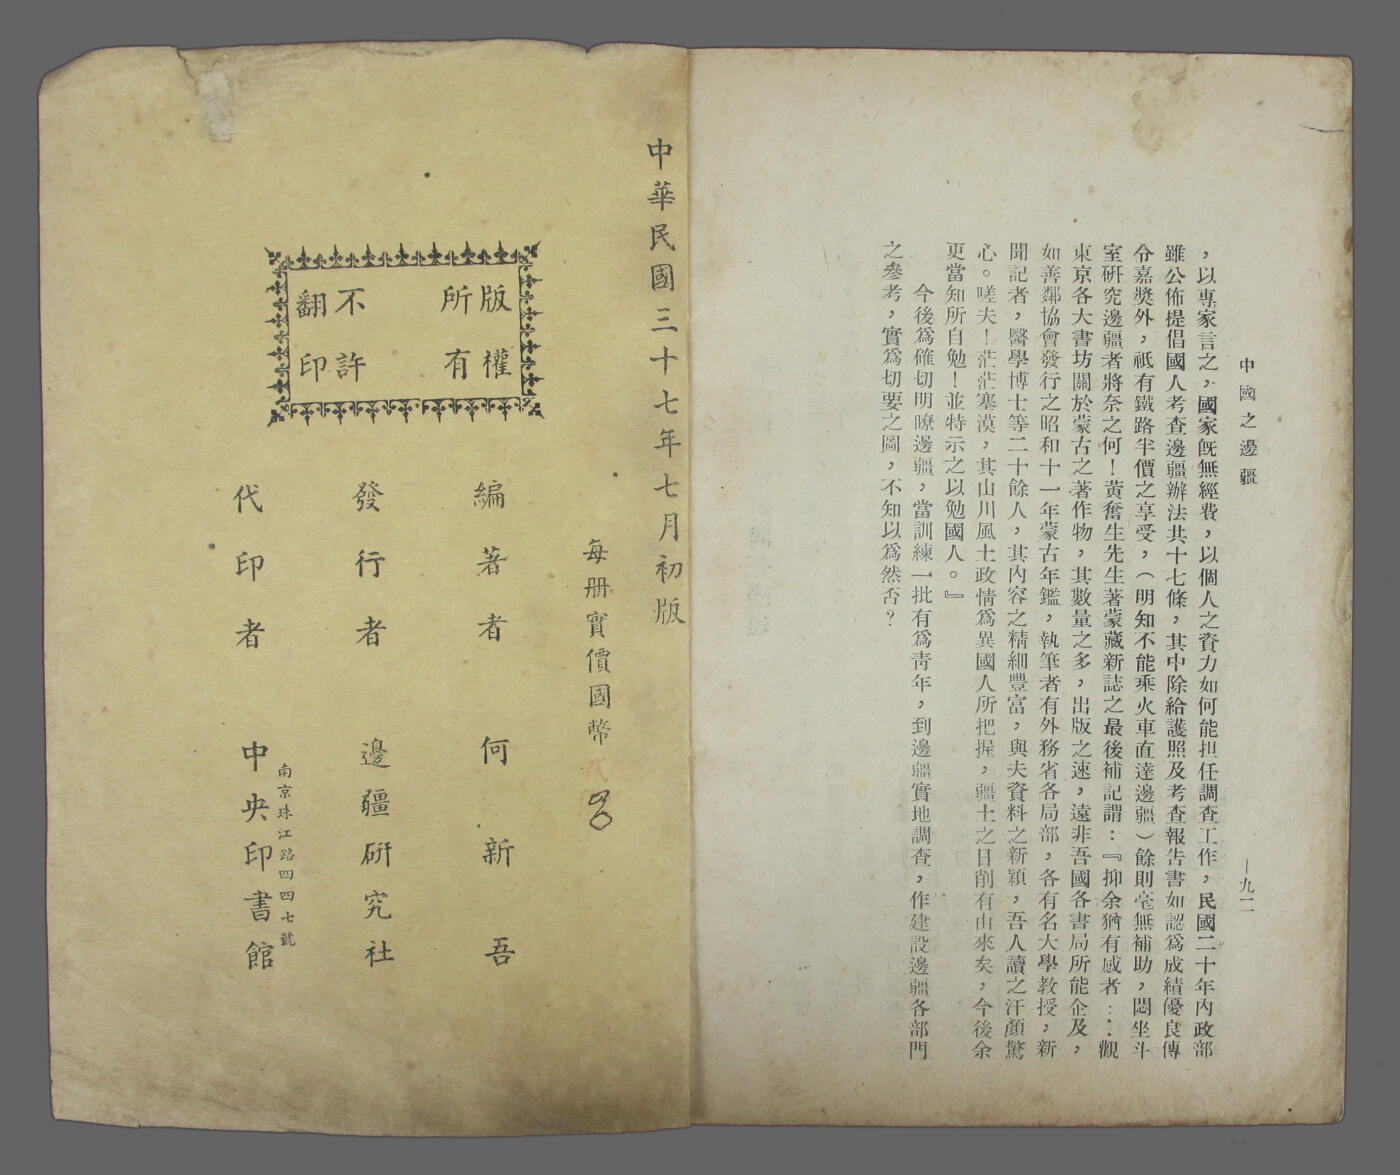 中國之邊疆
一九二
，以專家言之，國家旣無經費，以個人之資力如何能担任調查工作，民國二十年內政部
雖公佈提倡國人考查邊疆辦法共十七條，其中除給護照及考查報告書如認爲成績優良傳
令嘉獎外，祇有鐵路半價之享受，（明知不能乘火車直達邊疆）餘則毫無補助，悶坐斗
室硏究邊疆者將奈之何！黃奮生先生著蒙藏新誌之最後補記謂：『抑余猶有感者：‥觀
東京各大書坊關於蒙古之著作物，其數量之多，出版之速，遠非吾國各書局所能企及，
如善鄰協會發行之昭和十一年蒙古年鑑，執筆者有外務省各局部，各有名大學教授，新
聞記者，醫學博士等二十餘人，其內容之精細豐富，與夫資料之新穎，吾人讀之汗顏驚
心。嗟夫！茫茫塞漠，其山川風土政情爲異國人所把握，疆土之日削有由來矣，今後余
更當知所自勉！並特示之以勉國人。』
今後爲確切明瞭邊疆，當訓練一批有爲靑年，到邊疆實地調查，作建設邊疆各部門
之參考，實爲切要之圖，不知以爲然否？
中華民國三十七年七月初版
每册實價國幣
版權
所有
不許
翻印
編著者 何新吾
發行者 邊疆硏究社
南京珠江路四四七號
代印者 中央印書館